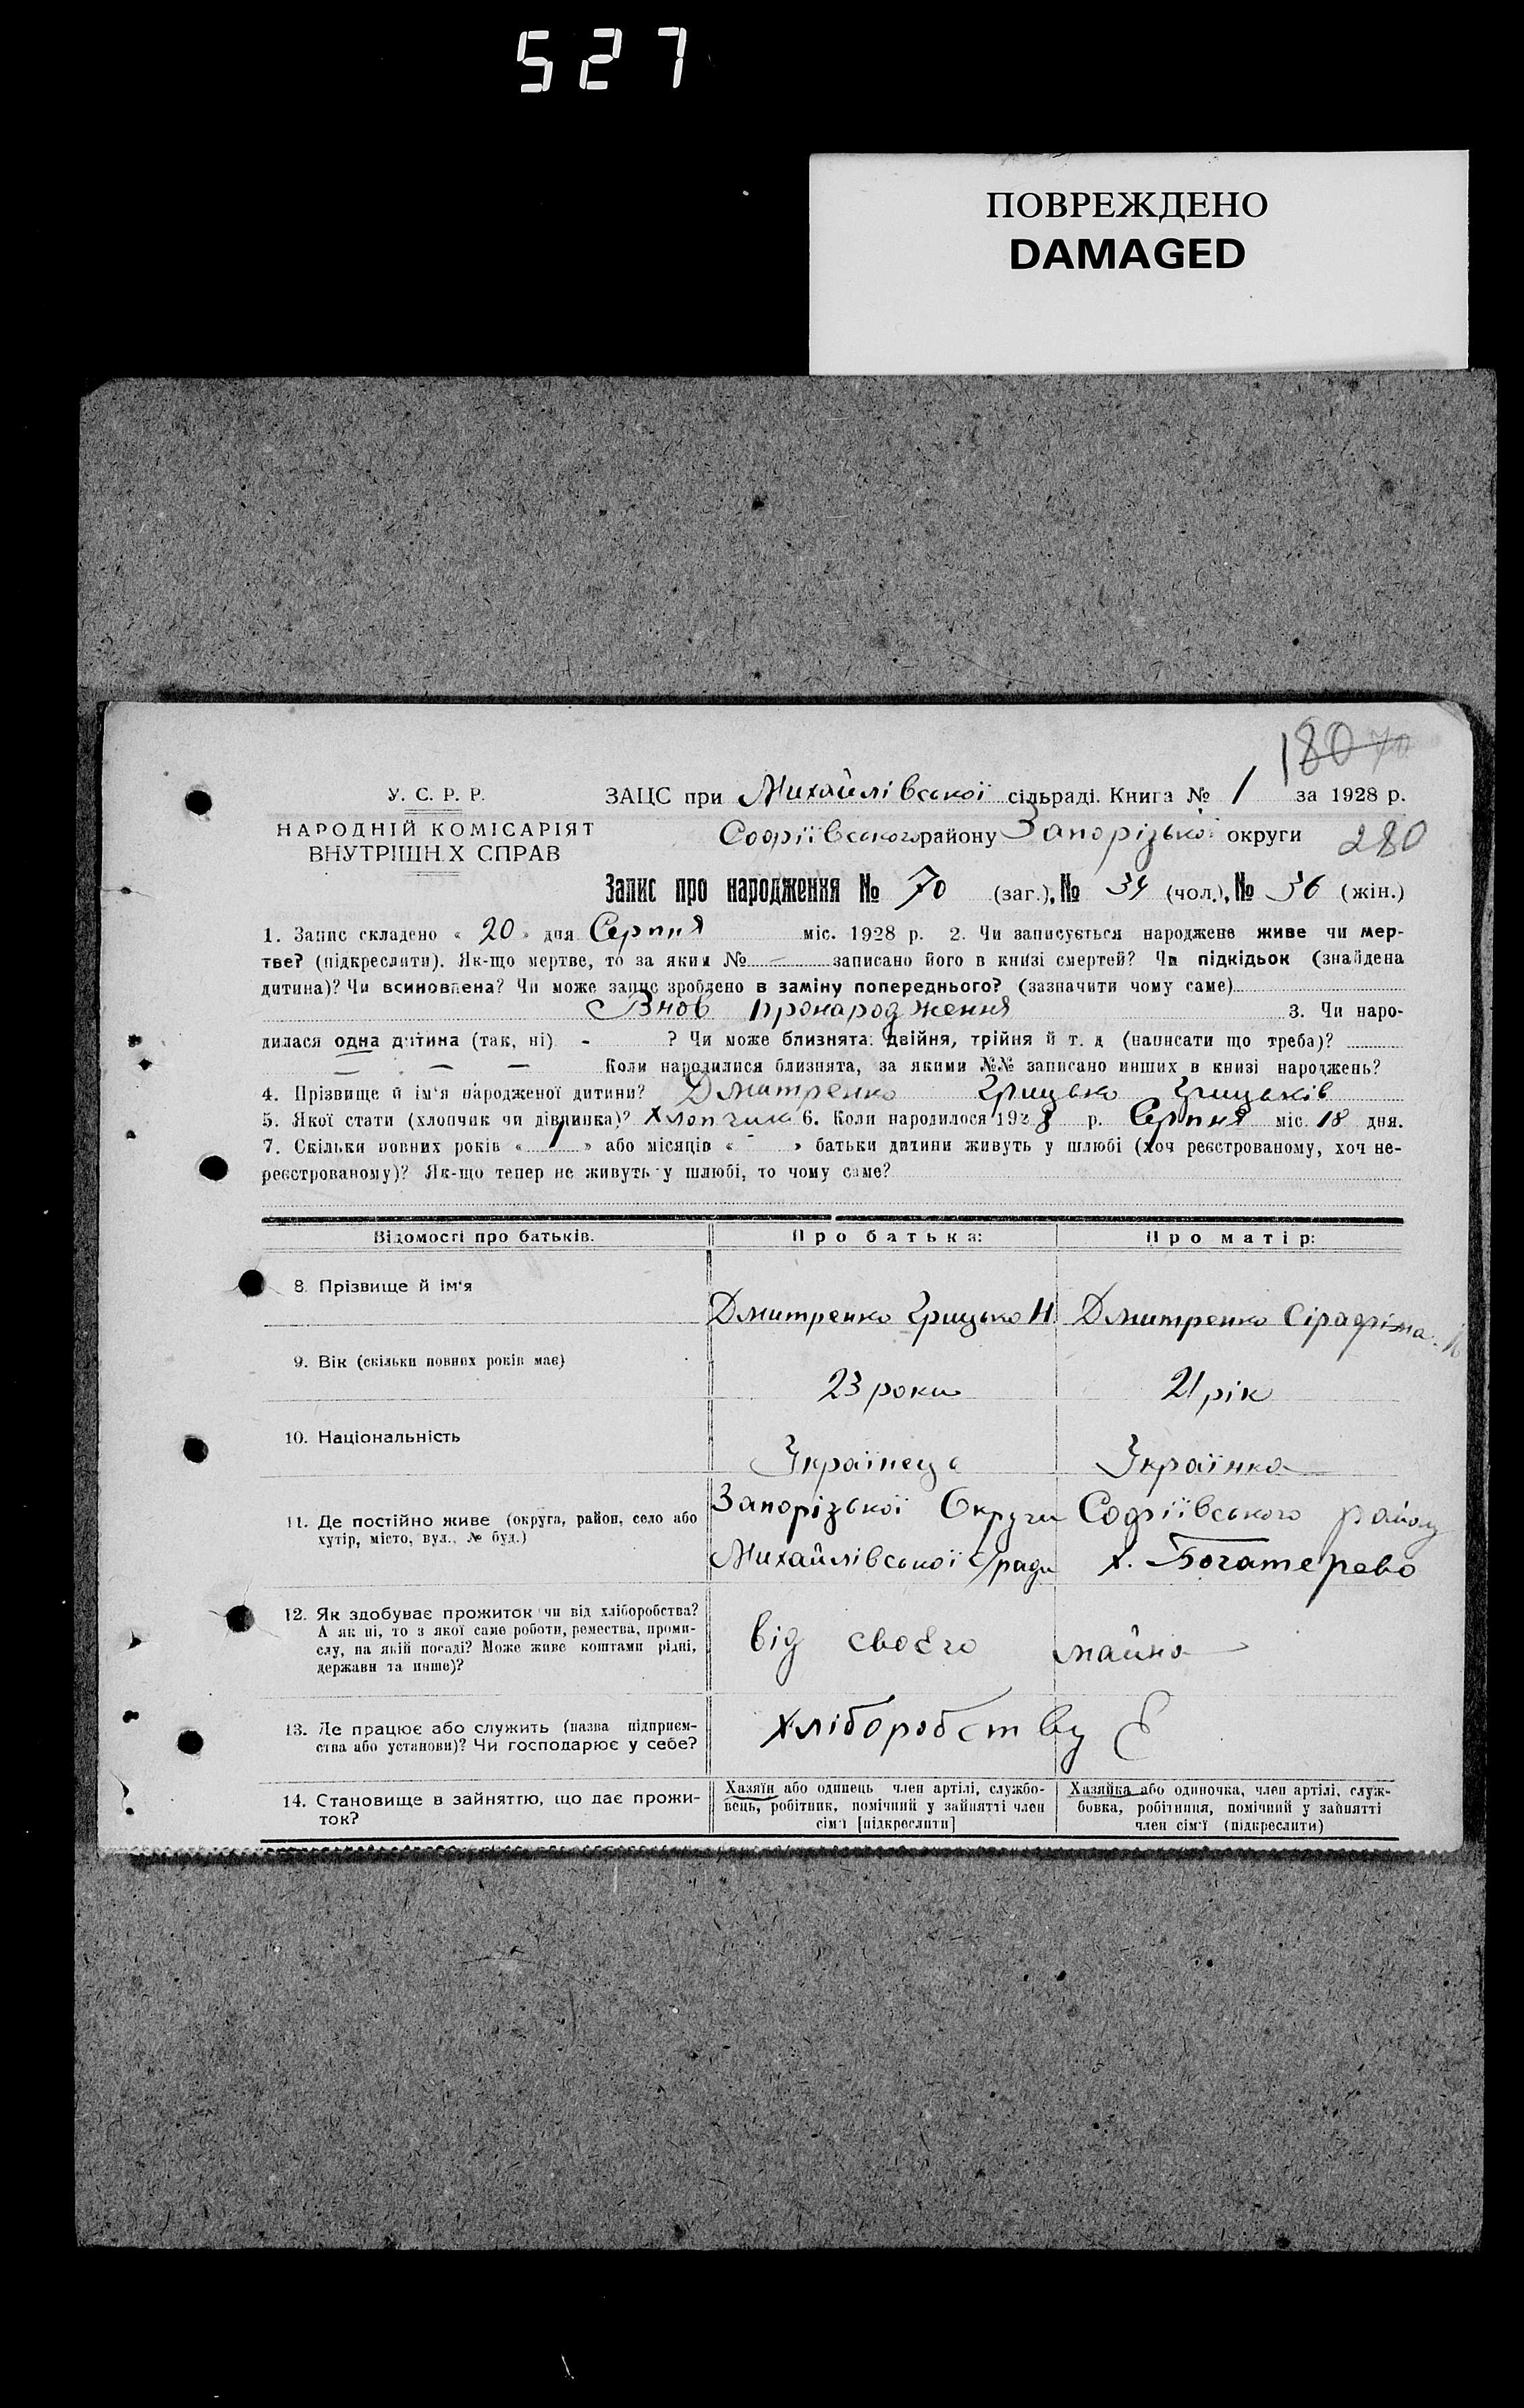 527
ПОВРЕЖДЕНО
DAMAGED
180 70
У. С. Р. Р.
ЗАЦС при Михайлівської сільраді. Книга № 1 за 1928 р.
НАРОДНІЙ КОМІСАРІЯТ
ВНУТРІШН Х СПРАВ
Софіївського району Запорізької округи 280
Запис про народження № 70 (заг.), № 34 (чол.), № 36 (жін.)
1. Запис складено « 20 » дня Серпня міс. 1928 р. 2. Чи записується народжене живе чи мер-
тве? (підкреслити). Як-що мертве, то за яким № — записано його в книзі смертей? Чи підкідьок (знайдена
дитина)? Чи всиновлена? Чи може запис зроблено в заміну попереднього? (зазначити чому саме)
Внов пронародження 3. Чи наро-
дилася одна дитина (так, ні) - ? Чи може близнята: двійня, трійня й т. д (написати що треба)?
— — — Коли народилися близнята, за якими №№ записано инших в книзі народжень?
4. Прізвище й ім'я народженої дитини? Дмитренко Грицько Грицьків
5. Якої стати (хлопчик чи дівчинка)? Хлопчик 6. Коли народилося 1928 р. Серпня міс. 18 дня.
7. Скільки повних років « 1 » або місяців « - » батьки дитини живуть у шлюбі (хоч реєстрованому, хоч не-
реєстрованому)? Як-що тепер не живуть у шлюбі, то чому саме?
Відомості про батьків. Про батька: Про матір:
8. Прізвище й ім'я
Дмитренко Грицько Н Дмитренко Сірафіма
9. Вік (скільки повних років має)
23 роки 21 рік
10. Національність
Українець Українка
11. Де постійно живе (округа, район, село або
хутір, місто, вул., № буд.)
Запорізької Округи Софіївського району
Михайлівської с/ради х. Богатерево
12. Як здобуває прожиток чи від хліборобства?
А як ні, то з якої саме роботи, ремества, проми-
слу, на якій посаді? Може живе коштами рідні,
держави та инше)?
від своєго майна
13. Де працює або служить (назва підприєм-
ства або установи)? Чи господарює у себе?
хліборобству Є
14. Становище в зайняттю, що дає прожи-
ток?
Хазяїн або одинець член артілі, службо-
вець, робітник, помічний у зайнятті член
сім'ї [підкреслити]
Хазяйка або одиночка, член артілі, служ-
бовка, робітниця, помічний у зайнятті
член сім'ї (підкреслити)